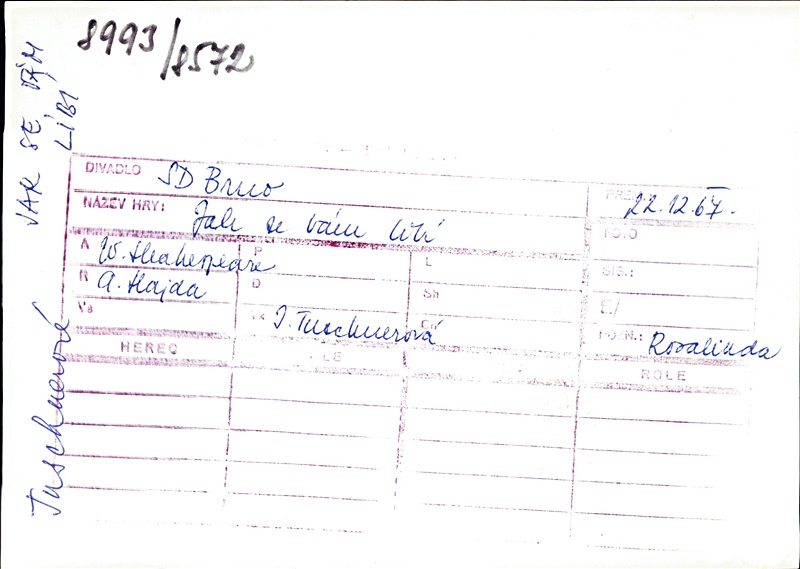 8993/8572
JAK SE VÁM LÍBÍ
Tuschnerové
DIVADLO SD Brno
22.12.67.
NÁZEV HRY: Jak se vám líbí
FOTO
A W. Shakespeare P L SIG.:
R A. Hajda D Sh Č/
Vs J. Tuschnerová POZN.: Rosalinda
HEREC ROLE
ROLE